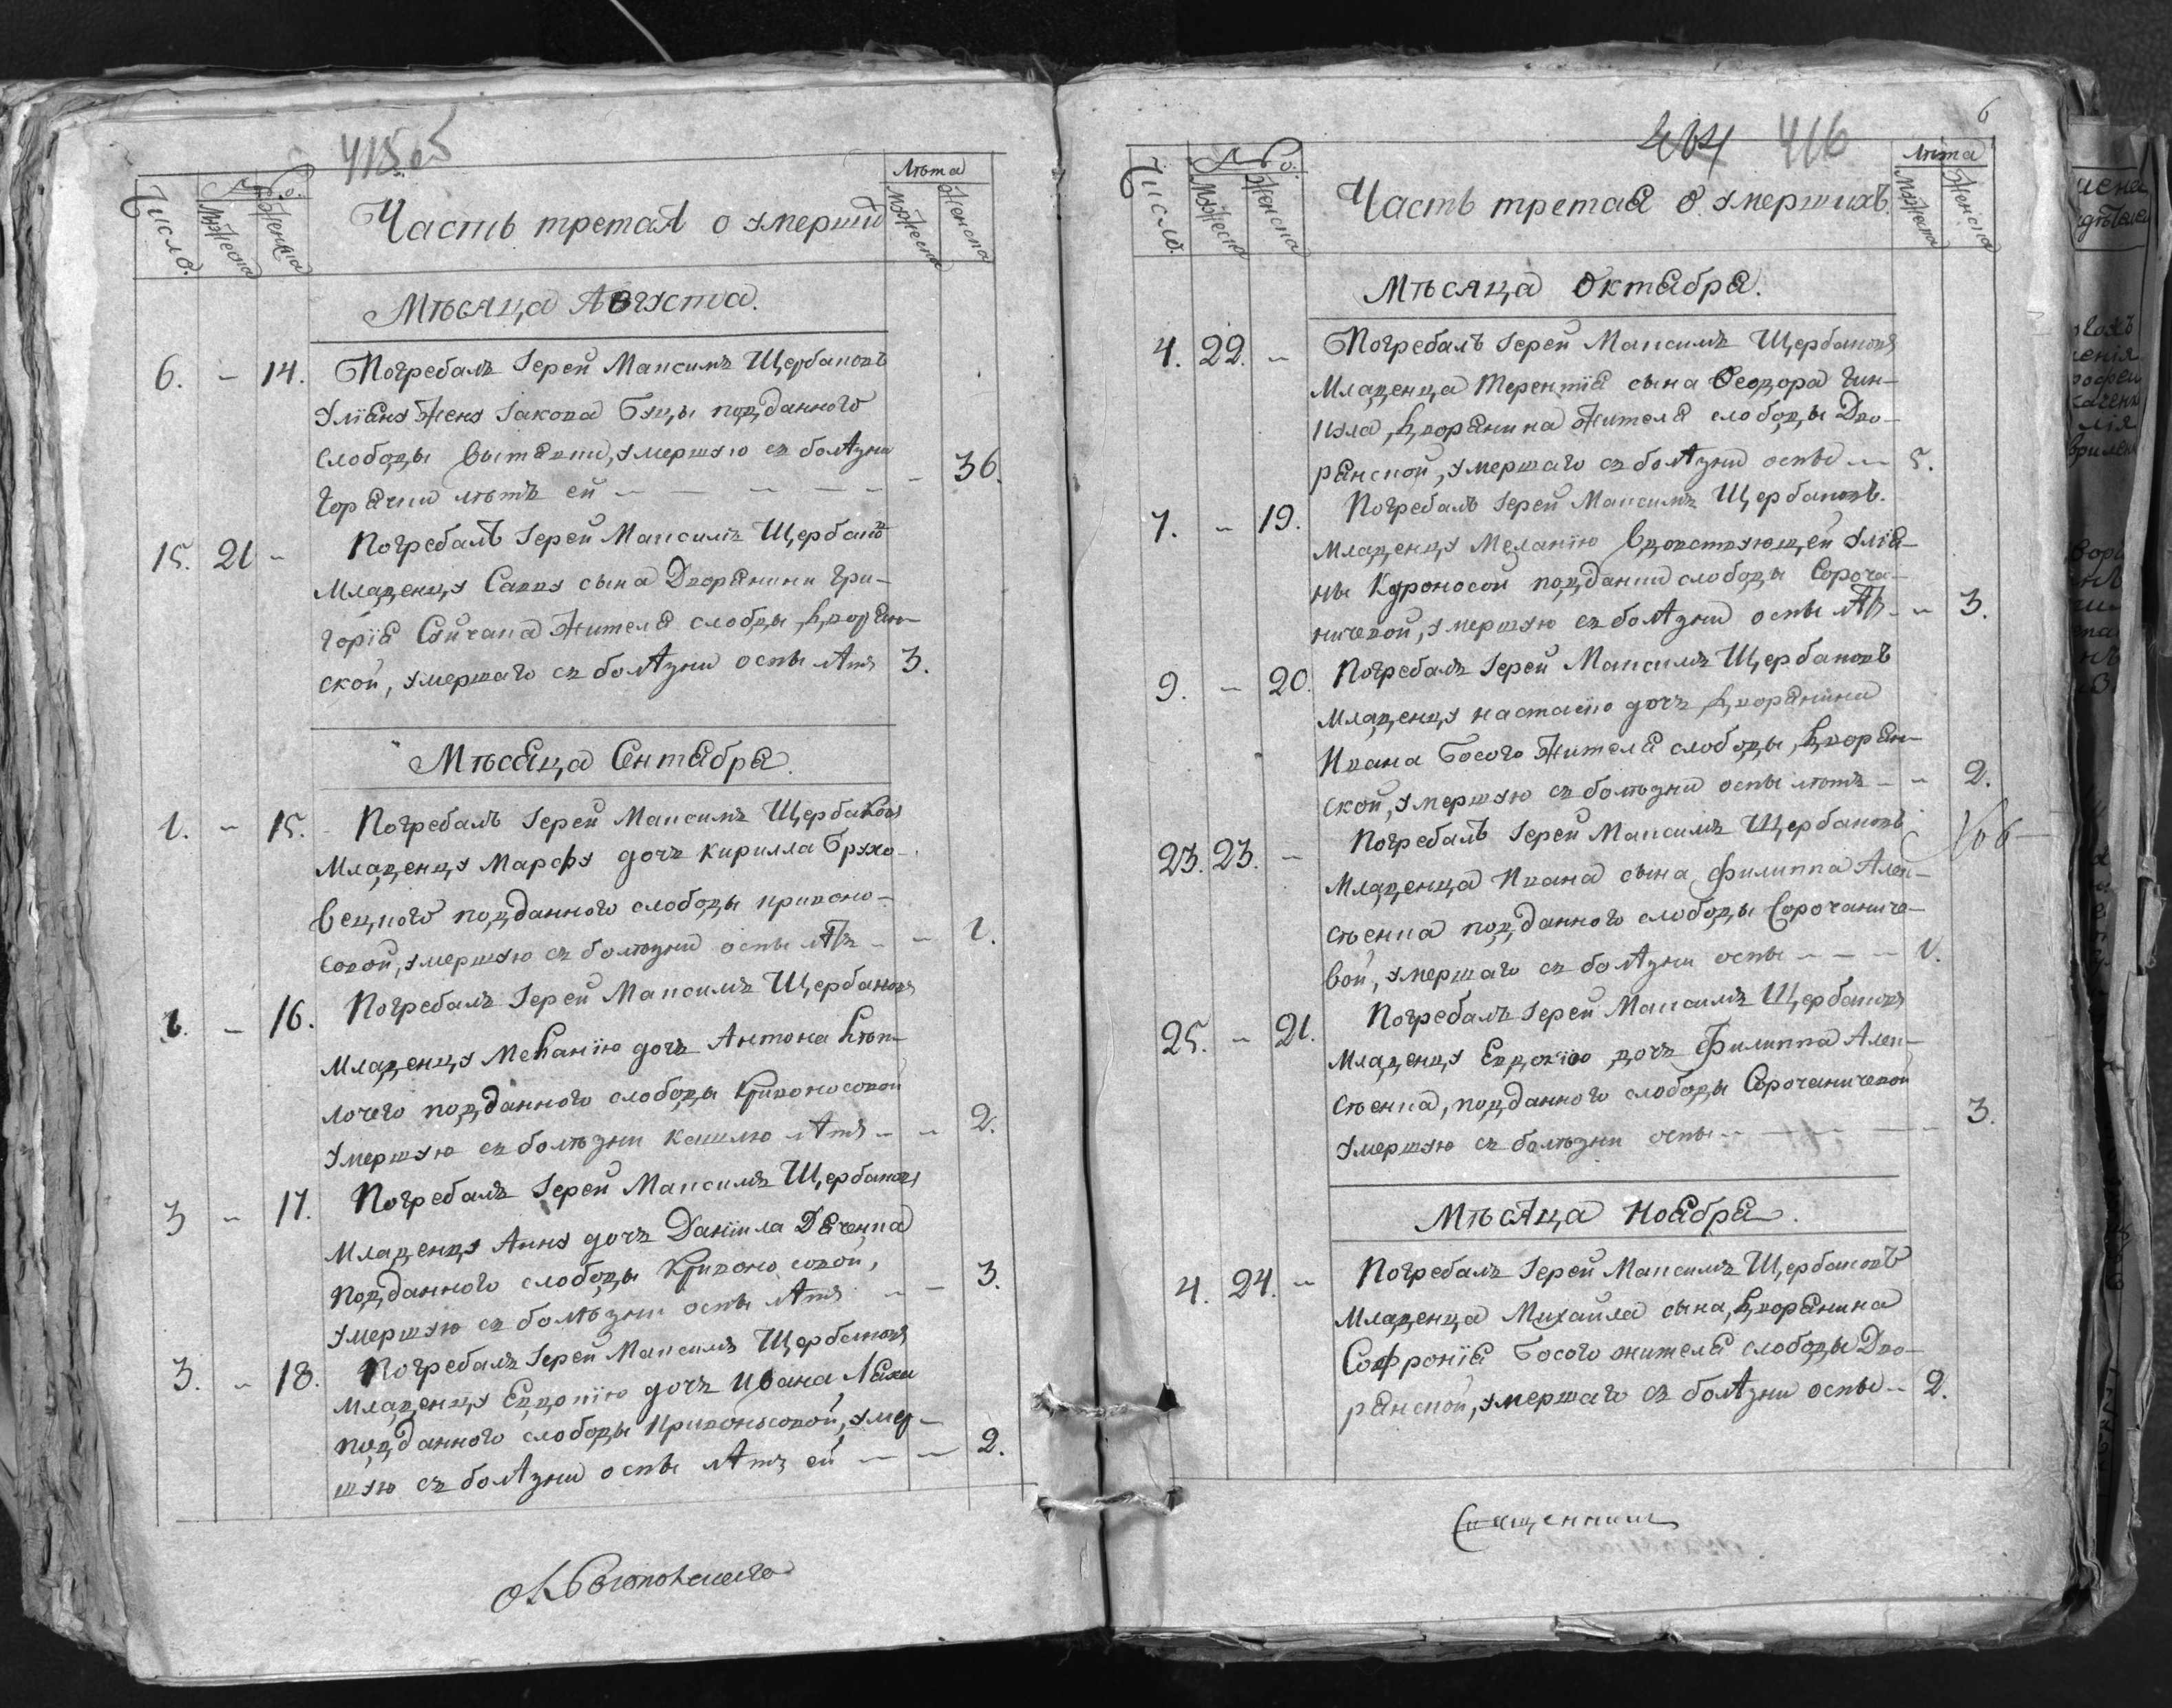 415
Число.
№
Мужеска
Женска
Часть третая о умерших
Лѣта
Мужеска
Женска
Мѣсяца Августа.
6. - 14. Погребалъ Іерей Максимъ Щербаковъ
Уліяну жену Іакова подданного
слободы умершую съ болѣзни
горячки лѣтъ ей - - - - - 36.
15. 21 - Погребалъ Іерей Максимъ Щербаковъ
Младенца Савву сына Дворянина Гри-
горія жителя слободы Дворян-
ской, умершаго съ болѣзни оспы лѣтъ 3.
Мѣсяца Сентября.
1. - 15. Погребалъ Іерей Максимъ Щербаковъ
Младенца Марфу дочь Кирилла Брухо-
вецкого подданного слободы Кривоно-
совой, умершую съ болѣзни оспы лѣтъ - - 1.
1. - 16. Погребалъ Іерей Максимъ Щербаковъ
Младенца Меланію дочь Антона
подданного слободы Кривоносовой
умершую съ болѣзни кашлю лѣтъ - - 2.
3 - 17. Погребалъ Іерей Максимъ Щербаковъ
Младенца Анну дочь Даніила Дяченка
подданного слободы Кривоносовой,
умершую съ болѣзни оспы лѣтъ - - 3.
3. - 18. Погребалъ Іерей Максимъ Щербаковъ
Младенца Евдокію дочь Ивана Ляха
подданного слободы Кривоносовой, умер-
шую съ болѣзни оспы лѣтъ ей - - 2.
6
404 416
Число.
№
Мужеска
Женска
Часть третая о умершихъ.
Лѣта
Мужеска
Женска
Мѣсяца Октября.
4. 22. - Погребалъ Іерей Максимъ Щербаковъ
Младенца Терентія сына Ѳеодора
Дворянина жителя слободы Дво-
рянской, умершаго съ болѣзни оспы - 5.
7. - 19. Погребалъ Іерей Максимъ Щербаковъ.
Младенца Меланію вдовствующей Улія-
ны подданной слободы Сороча-
ничевой, умершую съ болѣзни оспы лѣтъ - - 3.
9. - 20. Погребалъ Іерей Максимъ Щербаковъ
Младенца Настасію дочь Дворянина
Ивана Босого жителя слободы Дворян-
ской, умершую съ болѣзни оспы лѣтъ - - 2.
23. 23. - Погребалъ Іерей Максимъ Щербаковъ
Младенца Ивана сына Филиппа Алек-
сѣенка подданного слободы Сорочаниче-
вой, умершаго съ болѣзни оспы - - - 1.
25. - 21. Погребалъ Іерей Максимъ Щербаковъ
Младенца Евдокію дочь Филиппа Алек-
сѣенка, подданного слободы Сорочаничевой
умершую съ болѣзни оспы - - - - 3.
Мѣсяца Ноября.
4. 24. - Погребалъ Іерей Максимъ Щербаковъ
Младенца Михаила сына Дворянина
Софронія Босого жителя слободы Дво-
рянской, умершаго съ болѣзни оспы - 2.
Священник